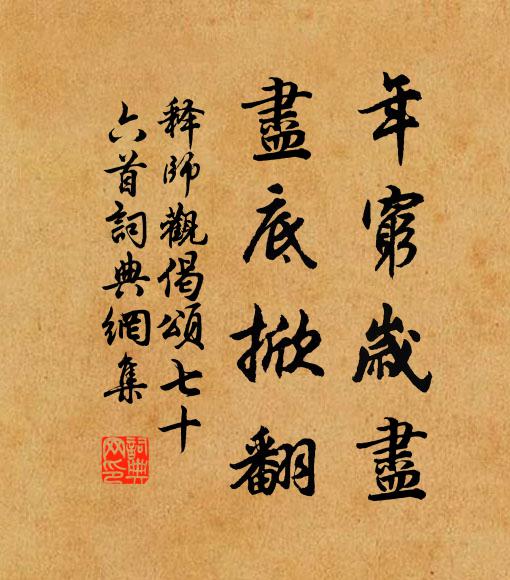 年窮歲盡
盡底掀翻
释師觀偈頌七十
六首詞典網集